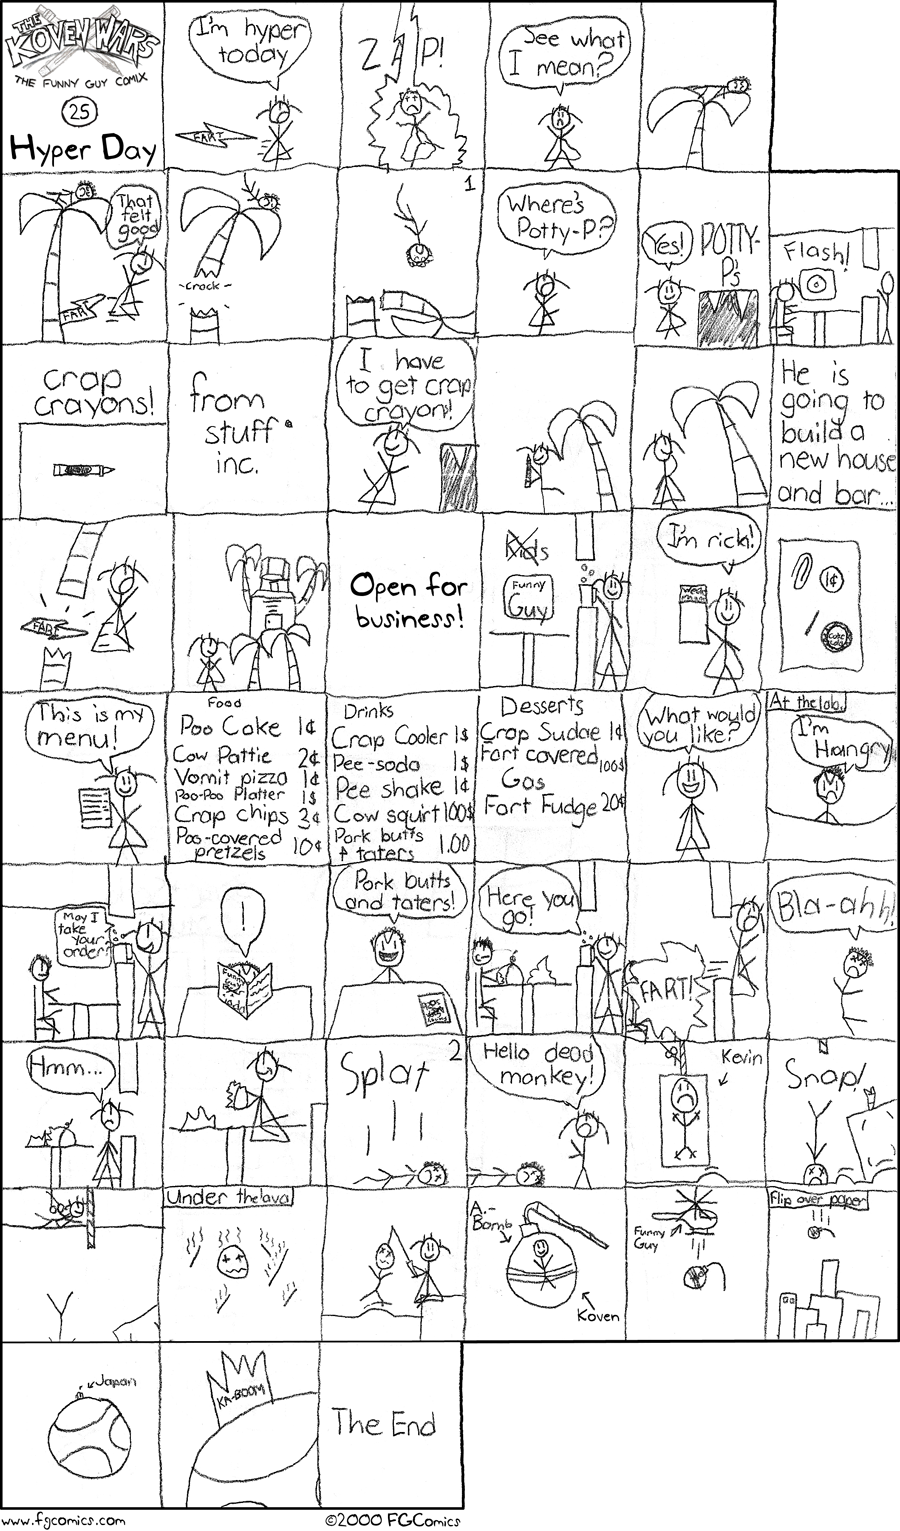 THE
KOVEN WARS
THE FUNNY GUY COMIX
25
Hyper Day
I'm hyper
today
FART
ZAP!
See what
I mean?
That
felt
good
FART
crack
1
Where's
Potty-P?
Yes!
POTTY-
P's
Flash!
crap
crayons!
from
stuff
inc.
I have
to get crap
crayon!
He is
going to
build a
new house
and bar...
FART
Open for
business!
Kids
Funny
Guy
I'm rich!
1¢
This is my
menu!
Food
Poo Cake 1¢
Cow Pattie 2¢
Vomit pizza 1¢
Poo-Poo Platter 1$
Crap chips 3¢
Poo-covered
pretzels 10¢
Drinks
Crap Cooler 1$
Pee-soda 1$
Pee shake 1¢
Cow squirt 100$
Pork butts
+ taters 1.00
Desserts
Crap Sudae 1¢
Fart covered 100$
Gas
Fart Fudge 20¢
What would
you like?
At the lab.
I'm
Hangry
May I
take
your
order?
!
Pork butts
and taters!
Here you
go!
FART!
Bla-ahh!
Hmm...
Splat
2
Hello dead
monkey!
Kevin
Snap!
Under the lava
A.-
Bomb
Koven
Funny
Guy
Flip over paper
Japan
KA-BOOM
The End
www.fgcomics.com
©2000 FGComics